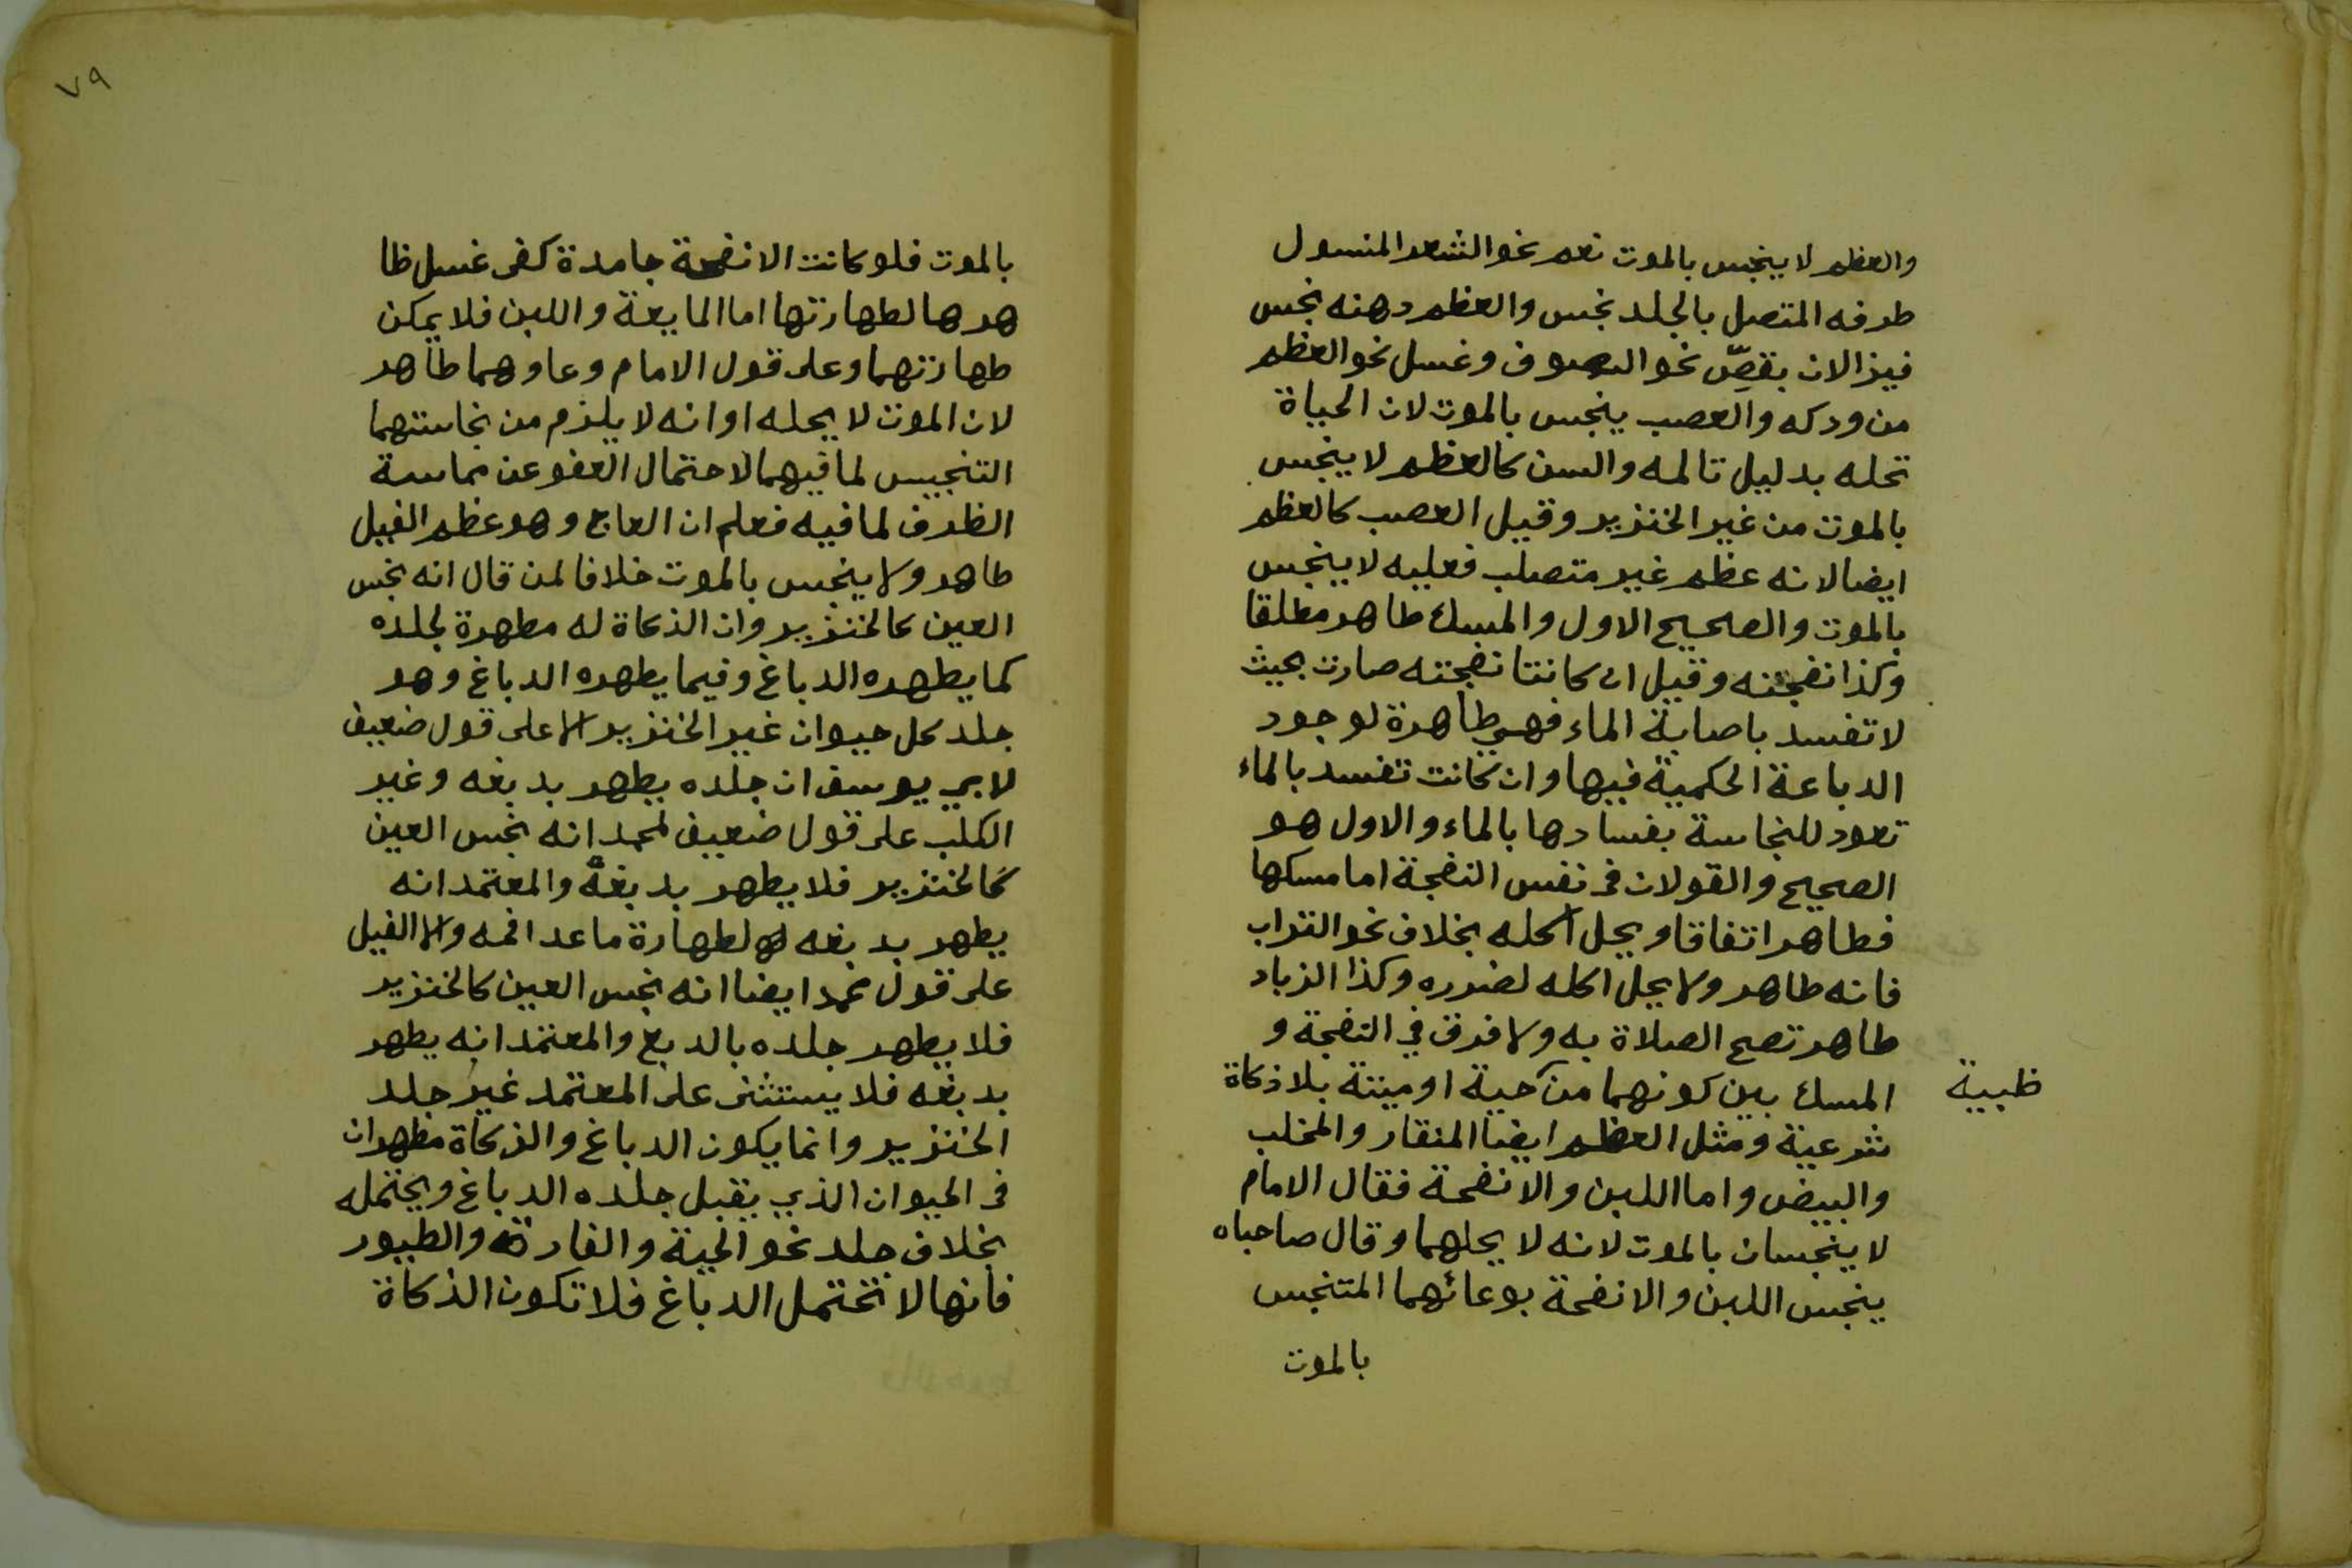 والعظم لا ينجس بالموت نعم نحو الشعر المنسول
طرفه المتصل بالجلد نجس والعظم دهنه نجس
فيزالان بقصّ نحو الصوف وغسل نحو العظم
من ودكه والعصب ينجس بالموت لان الحياة
تحله بدليل تالمه والسن كالعظم لا ينجس
بالموت من غير الخنزير وقيل العصب كالعظم
ايضا لانه عظم غير متصلب فعليه لا ينجس
بالموت والصحيح الاول والمسك طاهر مطلقا
وكذا نفجته وقيل ان كانت نفجته صارت بحيث
لا تفسد باصابة الماء فهي طاهرة لوجود
الدباغة الحكمية فيها وان كانت تفسد بالماء
تعود للنجاسة بفسادها بالماء والاول هو
الصحيح والقولان في نفس النفجة اما مسكها
فطاهر اتفاقا ويحل اكله بخلاف نحو التراب
فانه طاهر ولا يحل اكله لضرره وكذا الزباد
طاهر تصح الصلاة به ولا فرق في النفجة و
المسك بين كونهما من حية او ميتة بلا ذكاة
ظبية
شرعية ومثل العظم ايضا المنقار والمخلب
والبيض واما اللبن والانفحة فقال الامام
لا ينجسان بالموت لانه لا يحلهما وقال صاحباه
ينجس اللبن والانفحة بوعائهما المتنجس
بالموت
٧٩
بالموت فلو كانت الانفحة جامدة كفى غسل ظا
هرها لطهارتها اما المايعة واللبن فلا يمكن
طهارتهما وعلى قول الامام وعاوهما طاهر
لان الموت لا يحله او انه لا يلزم من نجاستهما
التنجيس لما فيهما لاحتمال العفو عن مماسة
الظرف لما فيه فعلم ان العاج وهو عظم الفيل
طاهر ولا ينجس بالموت خلافا لمن قال انه نجس
العين كالخنزير وان الذكاة له مطهرة لجلده
كما يطهره الدباغ وفيما يطهره الدباغ وهو
جلد كل حيوان غير الخنزير الا على قول ضعيف
لابي يوسف ان جلده يطهر بدبغه وغير
الكلب على قول ضعيف لمحمد انه نجس العين
كالخنزير فلا يطهر بدبغه والمعتمد انه
يطهر بدبغه لطهارة ما عدا فمه والا الفيل
على قول محمد ايضا انه نجس العين كالخنزير
فلا يطهر جلده بالدبغ والمعتمد انه يطهر
بدبغه فلا يستثنى على المعتمد غير جلد
الخنزير وانما يكون الدباغ والذكاة مطهران
في الحيوان الذي يقبل جلده الدباغ ويحتمله
بخلاف جلد نحو الحية والفارة والطيور
فانها لا تحتمل الدباغ فلا تكون الذكاة